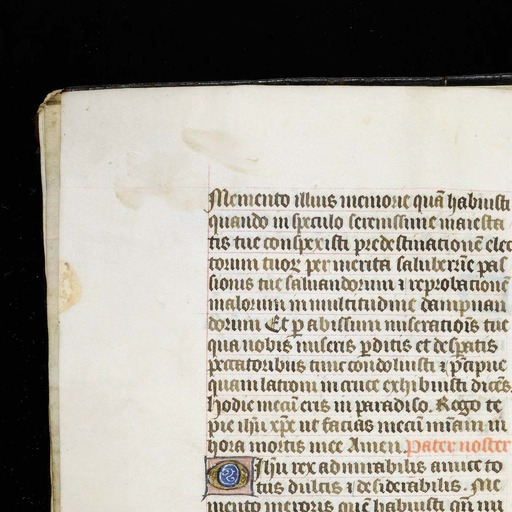 Memento illius memorie quã habuisti
quando in speculo serenissime maiesta
tis tue conspexisti predestinationẽ elec
torum tuoꝝ per merita saluberrĩe pas
sionis tue saluandorum ⁊ reprobationẽ
malorum in multitudine dampnan
dorum Et ꝑ abissum miseratiõis tue
qua nobis miseris ꝑditis et desꝑatis
peccatoribus tunc condoluisti ⁊ p̃cipue
quam latroni in cruce exhibuisti dicẽs
Hodie mecũ eris in paradiso. Rogo te
pie ihũ xp̃e ut facias mecũ mĩam in
hora mortis mee Amen. Pater noster
O Ihũ rex admirabilis amice to
tus dulcis ⁊ desiderabilis. Me
mento meroris quẽ habuisti qñ